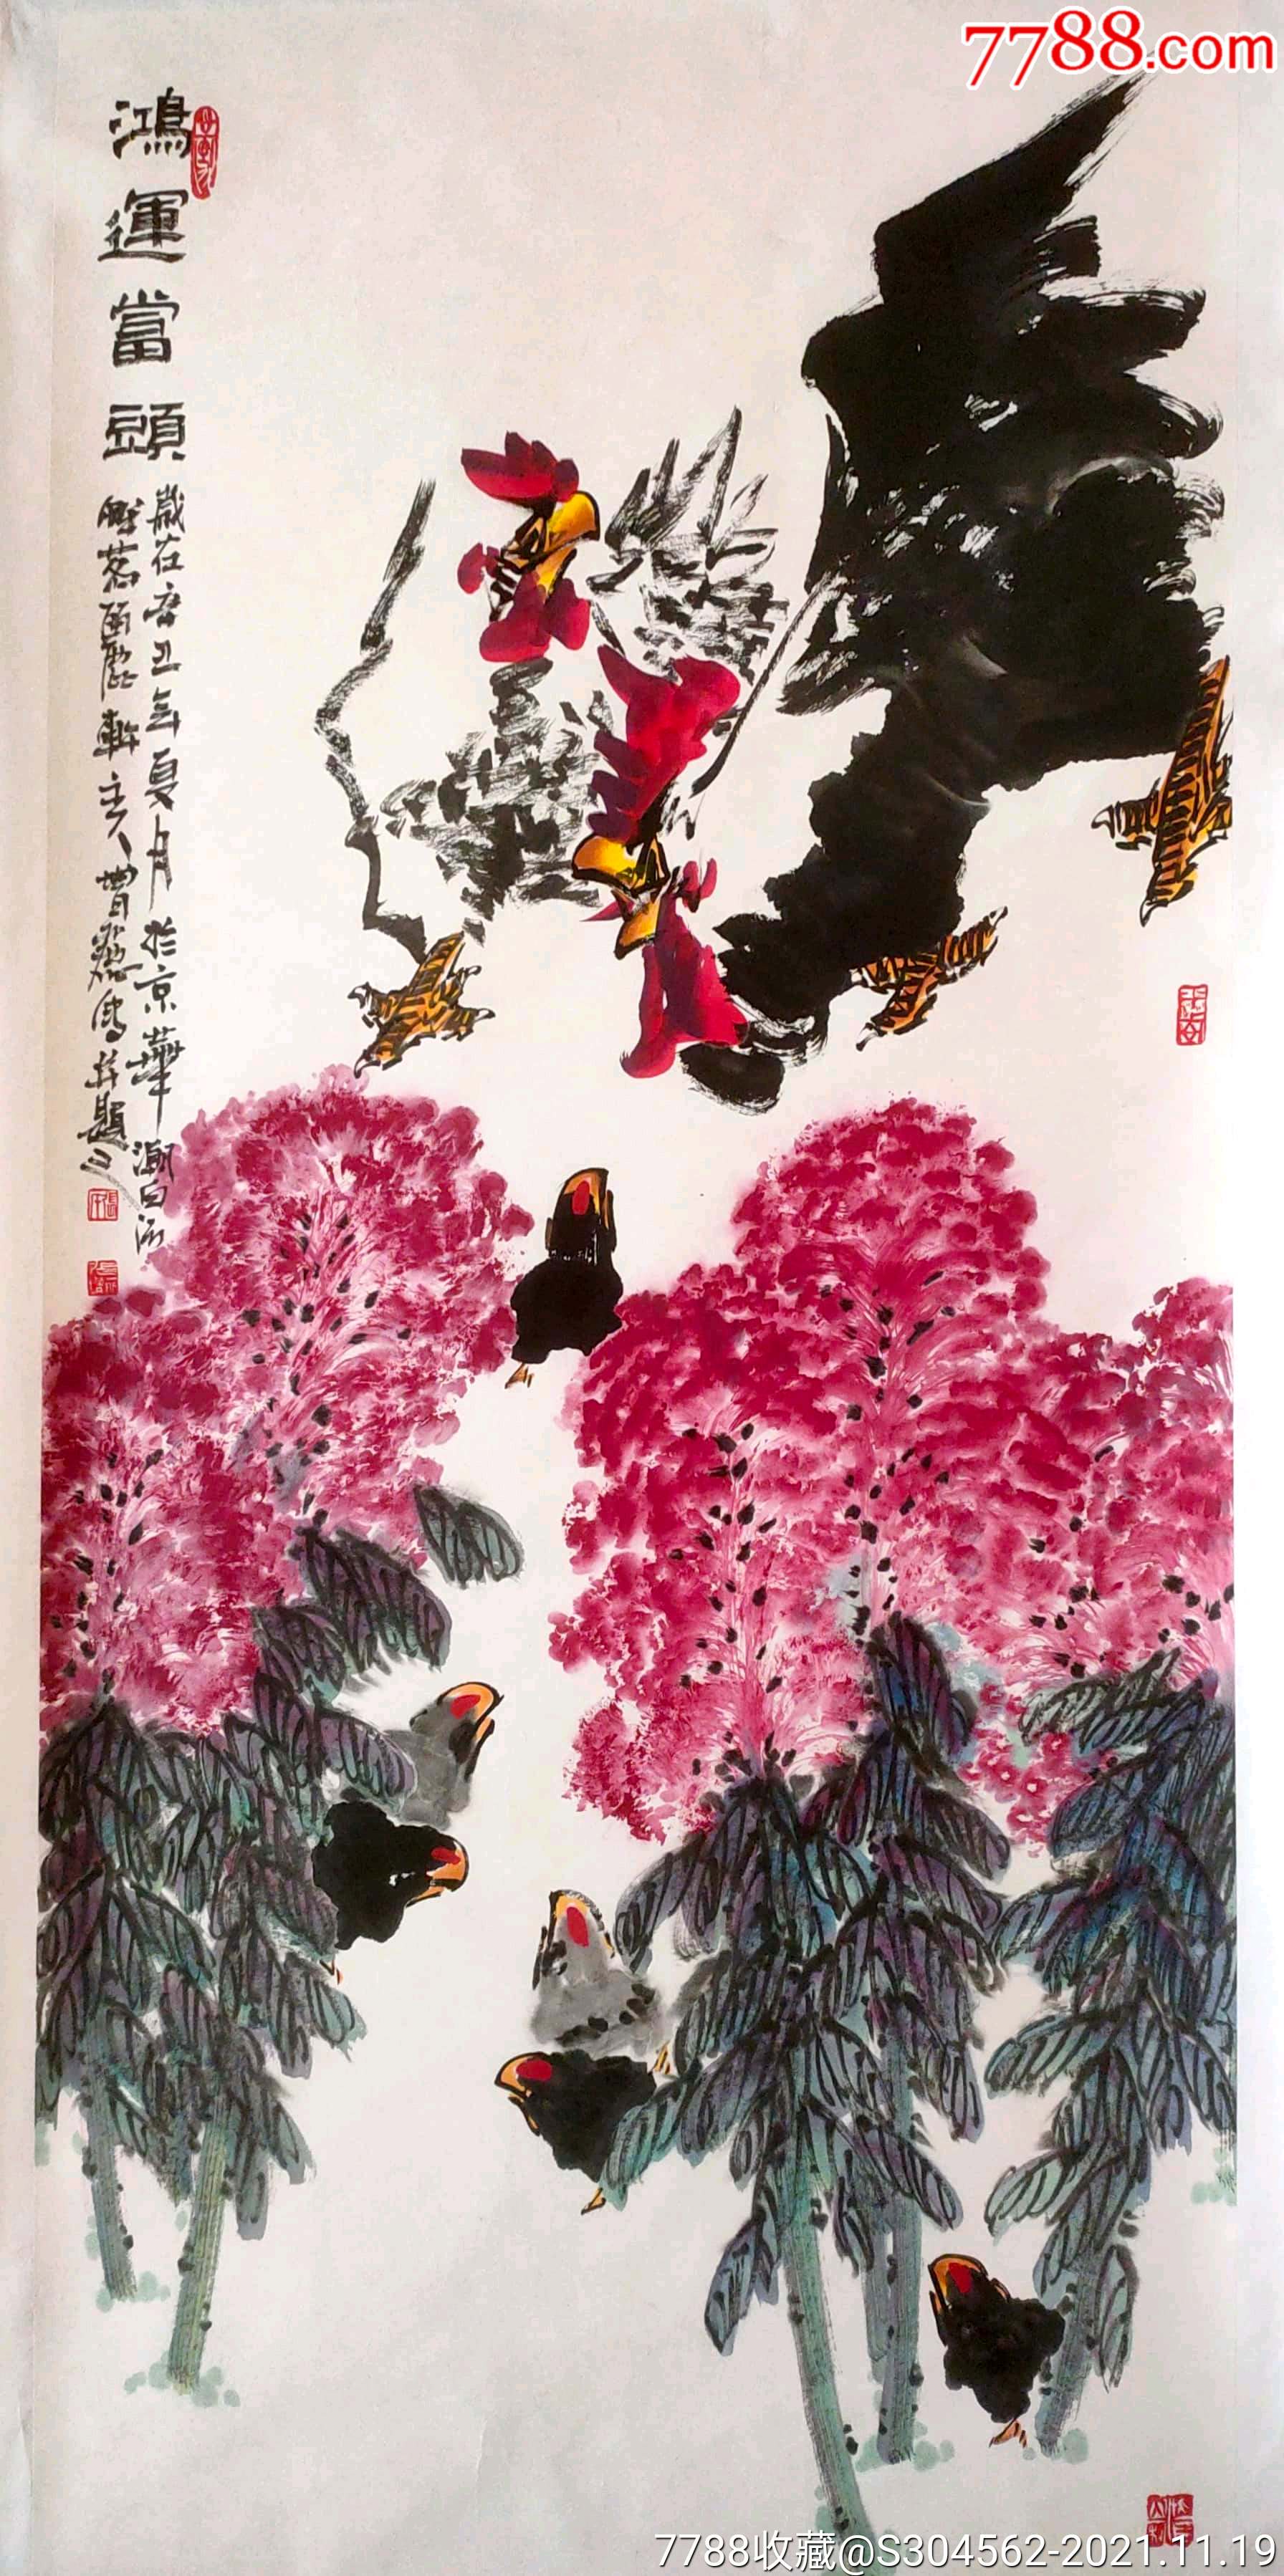 7788.com
鴻運當頭
歲在辛丑年夏月於京華潮白河
軒主人曹 寫并題
7788收藏@S304562-2021.11.19